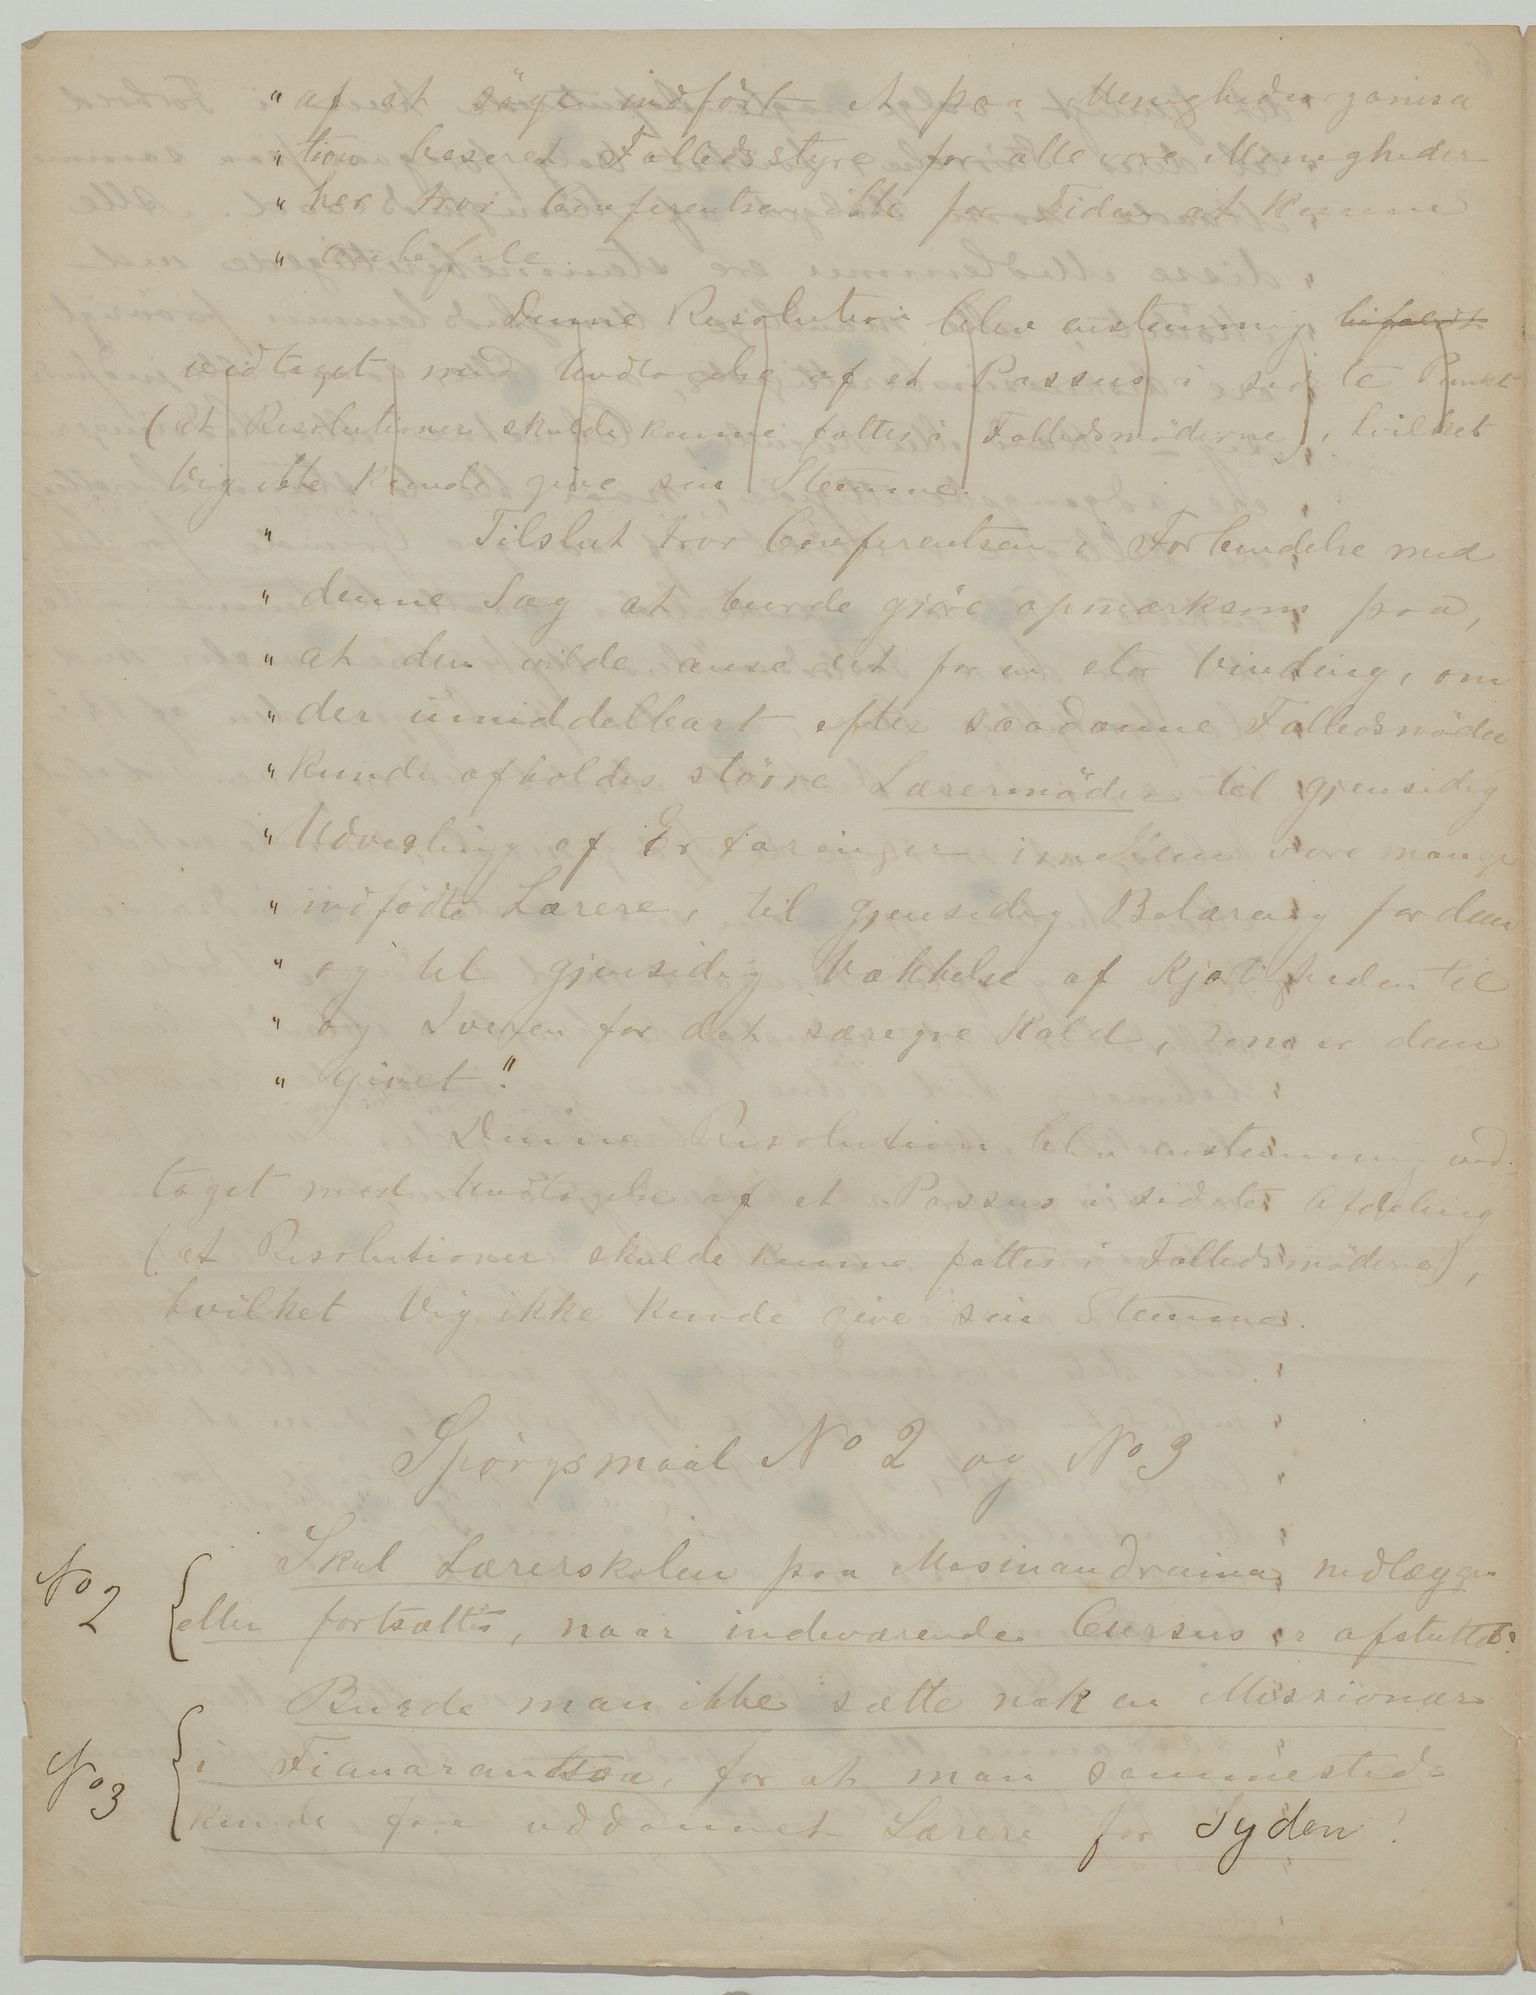 " af at søge indført et paa Menighedsorganisa
" tion baseret Fælledsstyre for alle vore Menigheder
" her tror Conferentsen ikke for Tiden at kunne
" anbefale
Denne Resolution blev enstemmig bifaldt
vedtaget med Undtagelse af et Passus i sidste Punkt
(at Resolutioner skulde kunne fattes i Fælledsmöderne), hvilket
Vig ikke kunde give sin Stemme.
" Tilslut tror Conferentsen i Forbindelse med
" denne Sag at burde gjöre opmærksom paa,
" at den vilde anse det for en stor Vinding, om
" der umiddelbart efter saadanne Fælledsmöder
" kunde afholdes större Lærermöder til gjensidig
" Udvexling af Erfaringer imellem vore mange
" indfödte Lærere, til gjensidig Belæring for dem
" og til gjensidig Vækkelse af Kjærligheden til
" og Iveren for det særegne Kald, som er dem
" givet."
Denne Resolution blev enstemmig ved-
taget med Undtagelse af et Passus i sidste Afdeling
(at Resolutioner skulde kunne fattes i Fælledsmöderne),
hvilket Vig ikke kunde give sin Stemme.
Spörgsmaal No 2 og No 3
No 2 Skal Lærerskolen paa Masinandraina nedlægges
eller fortsættes, naar indeværende Cursus er afsluttet?
Burde man ikke sætte nok en Missionær
No 3 i Fianarantsoa, for at man sammesteds
kunde faa uddannet Lærere for Syden?